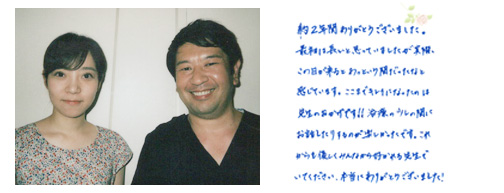 約2年間ありがとうございました。
最初は長いと思っていましたが実際、
この日が来るとあっという間だったなと
感じています。ここまでキレイになったのは
先生のおかげです!!治療のうしの間に
お話したりするのが楽しかったです。これ
からも優しくみんなから好かれる先生で
いてください。本当にありがとうございました!